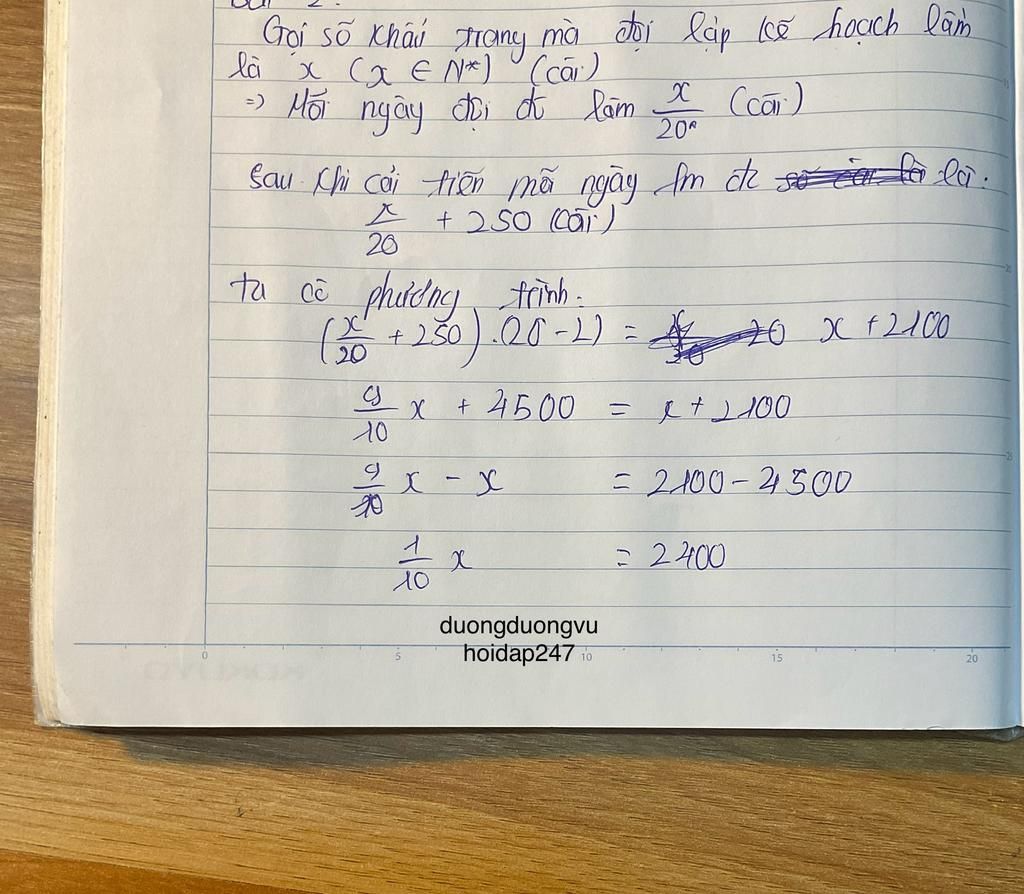 Gọi số khẩu trang mà đội lập kế hoạch làm
là x (x ∈ N*) (cái)
=> Mỗi ngày đội đc làm x/20 (cái)
Sau khi cải tiến mỗi ngày lm đc là:
x/20 + 250 (cái)
ta có phương trình:
(x/20 + 250).(20 - 2) = x + 2100
9/10 x + 4500 = x + 2100
9/10 x - x = 2100 - 4500
1/10 x = 2400
duongduongvu
hoidap247
0 5 10 15 20